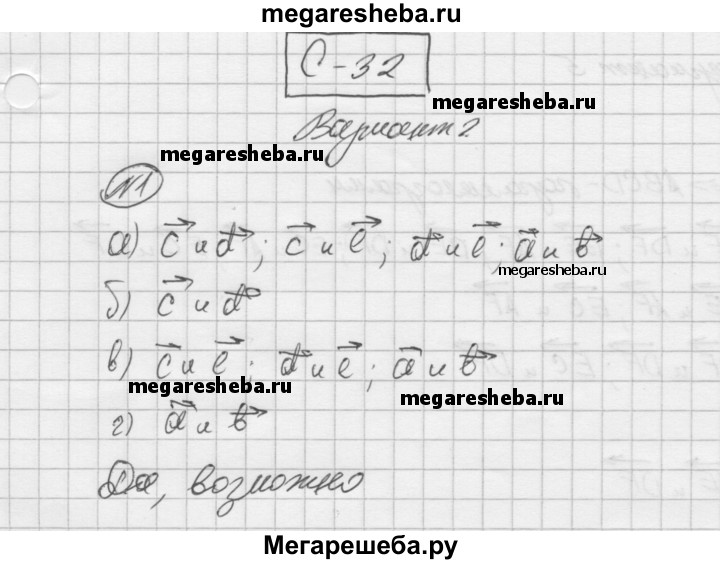 megaresheba.ru
С-32
megaresheba.ru
Вариант 2
megaresheba.ru
№1
а) c⃗ и d⃗; c⃗ и e⃗; d⃗ и e⃗; a⃗ и b⃗
megaresheba.ru
б) c⃗ и d⃗
в) c⃗ и e⃗; d⃗ и e⃗; a⃗ и b⃗
megaresheba.ru
megaresheba.ru
г) a⃗ и b⃗
Да, возможно
Мегарешеба.ру